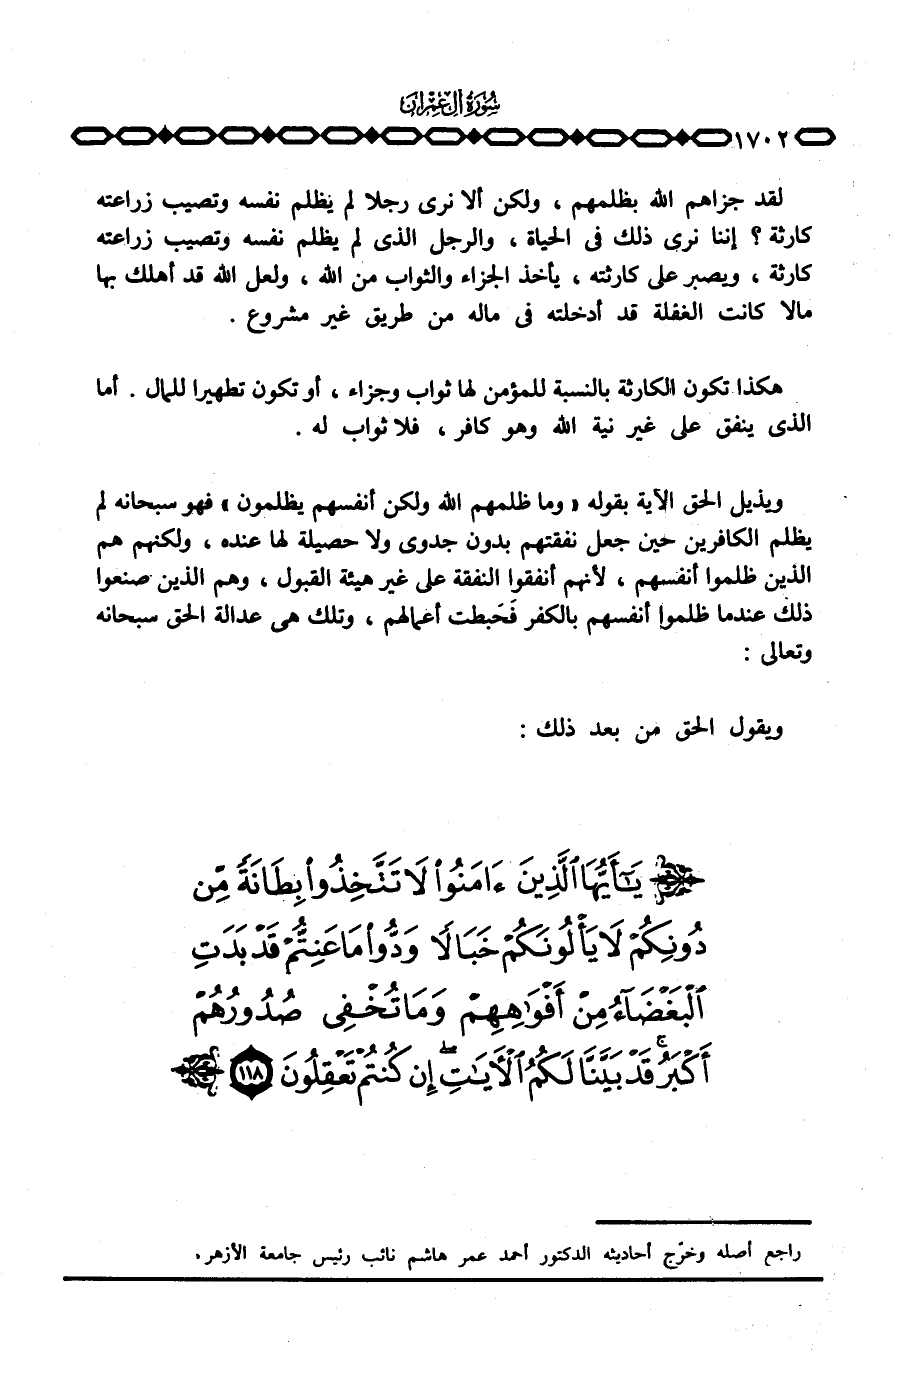 سورة آل عمران
١٧٠٢
لقد جزاهم الله بظلمهم ، ولكن ألا نرى رجلا لم يظلم نفسه وتصيب زراعته
كارثة ؟ إننا نرى ذلك فى الحياة ، والرجل الذى لم يظلم نفسه وتصيب زراعته
كارثة ، ويصبر على كارثته ، يأخذ الجزاء والثواب من الله ، ولعل الله قد أهلك بها
مالا كانت الغفلة قد أدخلته فى ماله من طريق غير مشروع .
هكذا تكون الكارثة بالنسبة للمؤمن لها ثواب وجزاء ، أو تكون تطهيرا للمال . أما
الذى ينفق على غير نية الله وهو كافر ، فلا ثواب له .
ويذيل الحق الآية بقوله « وما ظلمهم الله ولكن أنفسهم يظلمون » فهو سبحانه لم
يظلم الكافرين حين جعل نفقتهم بدون جدوى ولا حصيلة لها عنده ، ولكنهم هم
الذين ظلموا أنفسهم ، لأنهم أنفقوا النفقة على غير هيئة القبول ، وهم الذين صنعوا
ذلك عندما ظلموا أنفسهم بالكفر فَحَبطت أعمالهم ، وتلك هى عدالة الحق سبحانه
وتعالى :
ويقول الحق من بعد ذلك :
يَٰٓأَيُّهَا ٱلَّذِينَ ءَامَنُوا۟ لَا تَتَّخِذُوا۟ بِطَانَةً مِّن
دُونِكُمْ لَا يَأْلُونَكُمْ خَبَالًا وَدُّوا۟ مَا عَنِتُّمْ قَدْ بَدَتِ
ٱلْبَغْضَآءُ مِنْ أَفْوَٰهِهِمْ وَمَا تُخْفِى صُدُورُهُمْ
أَكْبَرُ ۚ قَدْ بَيَّنَّا لَكُمُ ٱلْأَيَٰتِ ۖ إِن كُنتُمْ تَعْقِلُونَ ١١٨
راجع أصله وخرّج أحاديثه الدكتور أحمد عمر هاشم نائب رئيس جامعة الأزهر .